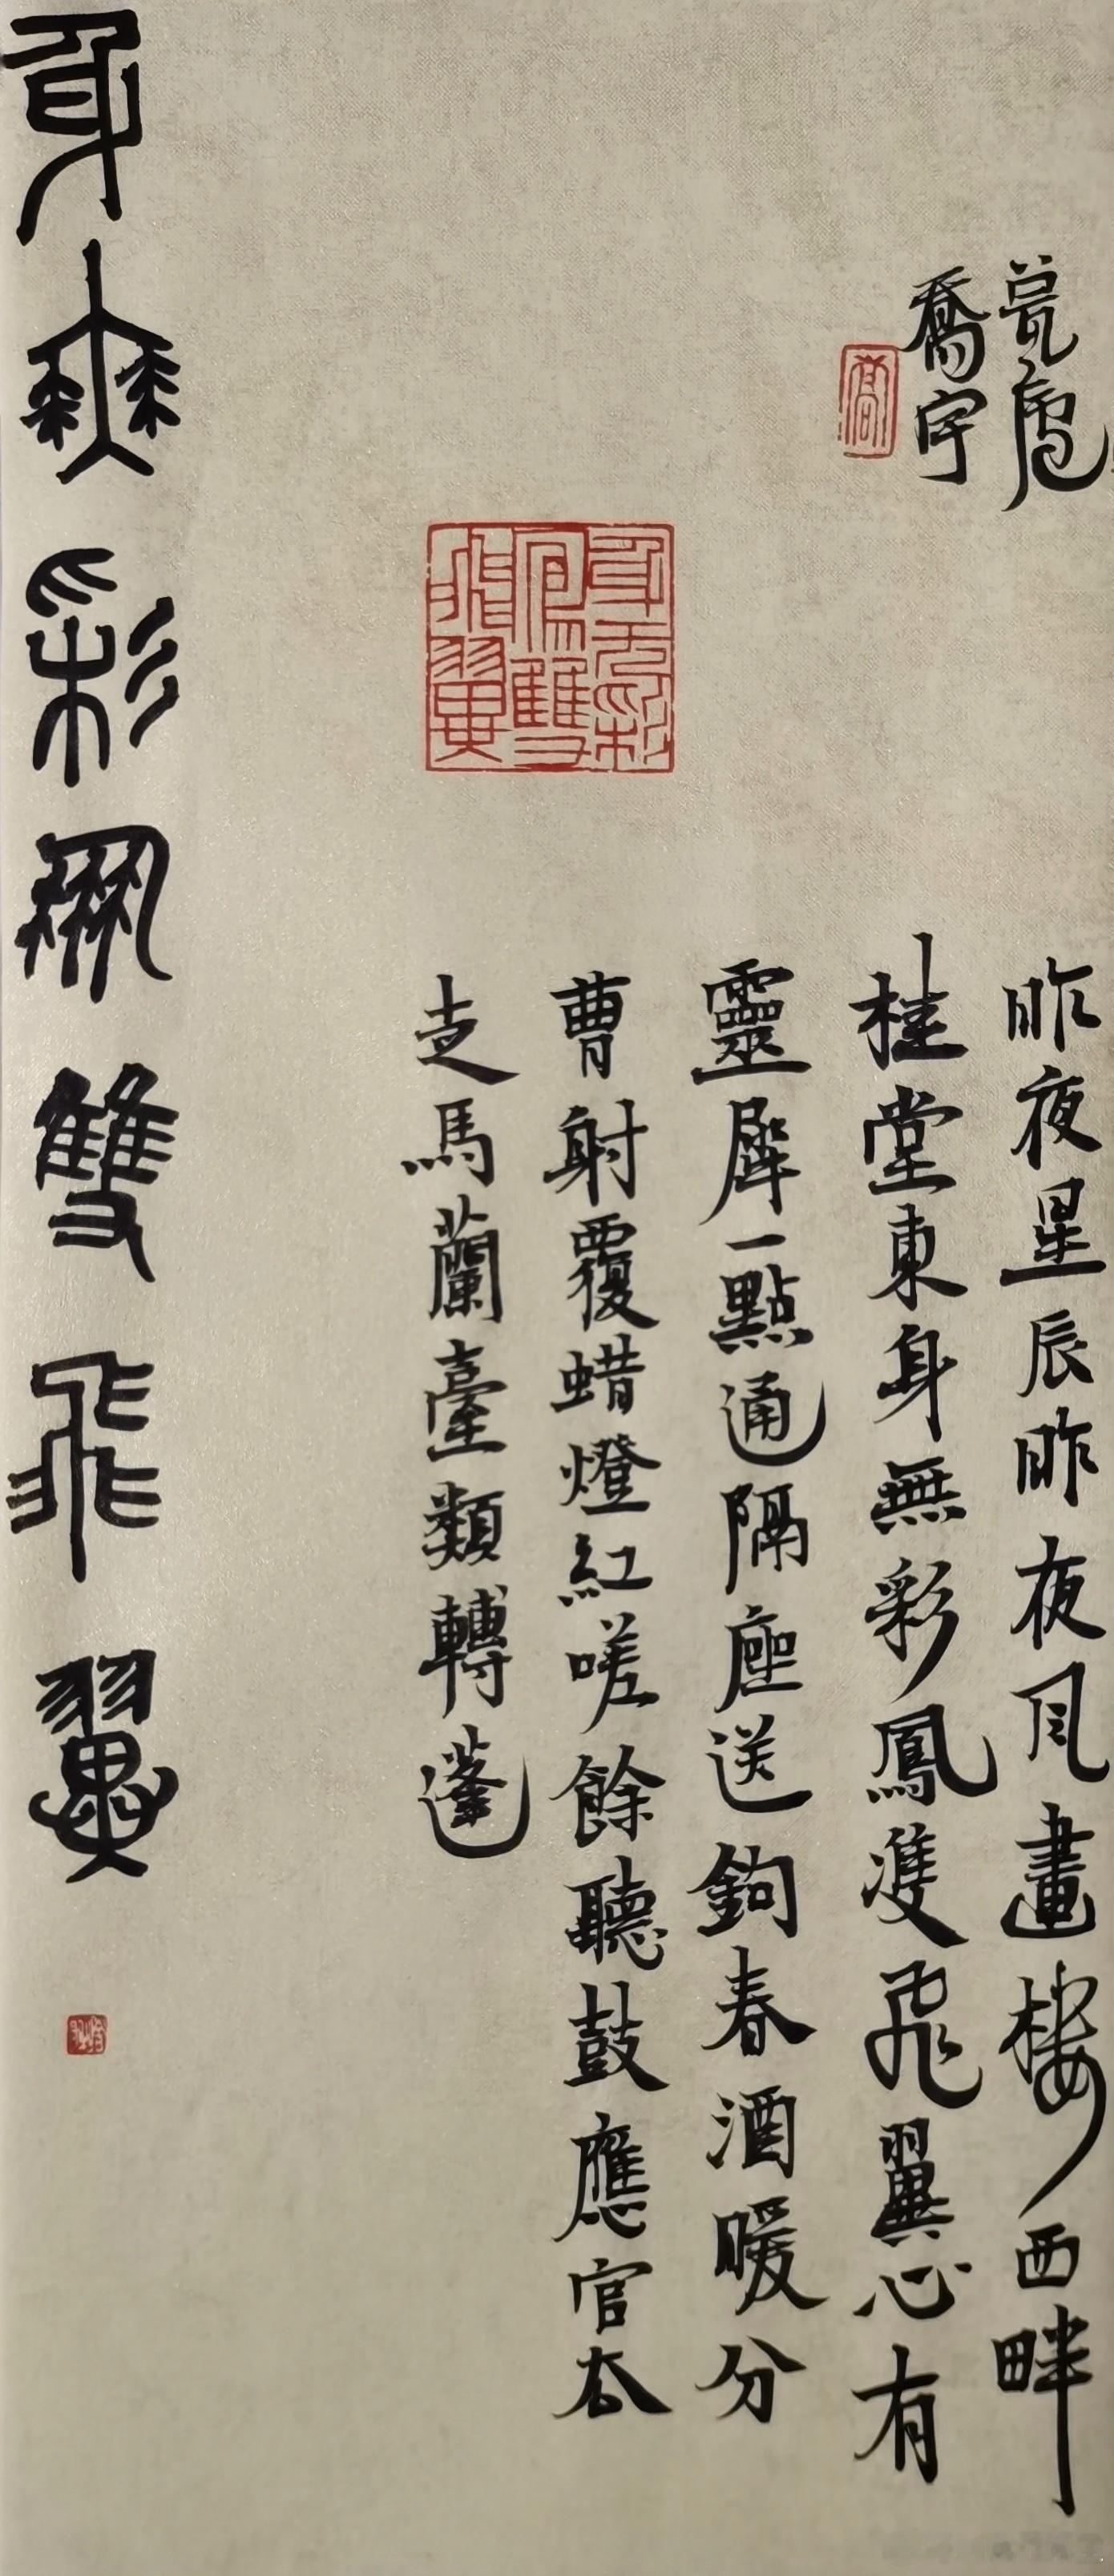 昨夜星辰昨夜風畫樓西畔
桂堂東身無彩鳳雙飛翼心有
靈犀一點通隔座送鉤春酒暖分
曹射覆蜡燈紅嗟餘聽鼓應官去
走馬蘭臺類轉蓬
喬宇
喬
身无彩
鳳雙
飛翼
身無彩鳳雙飛翼